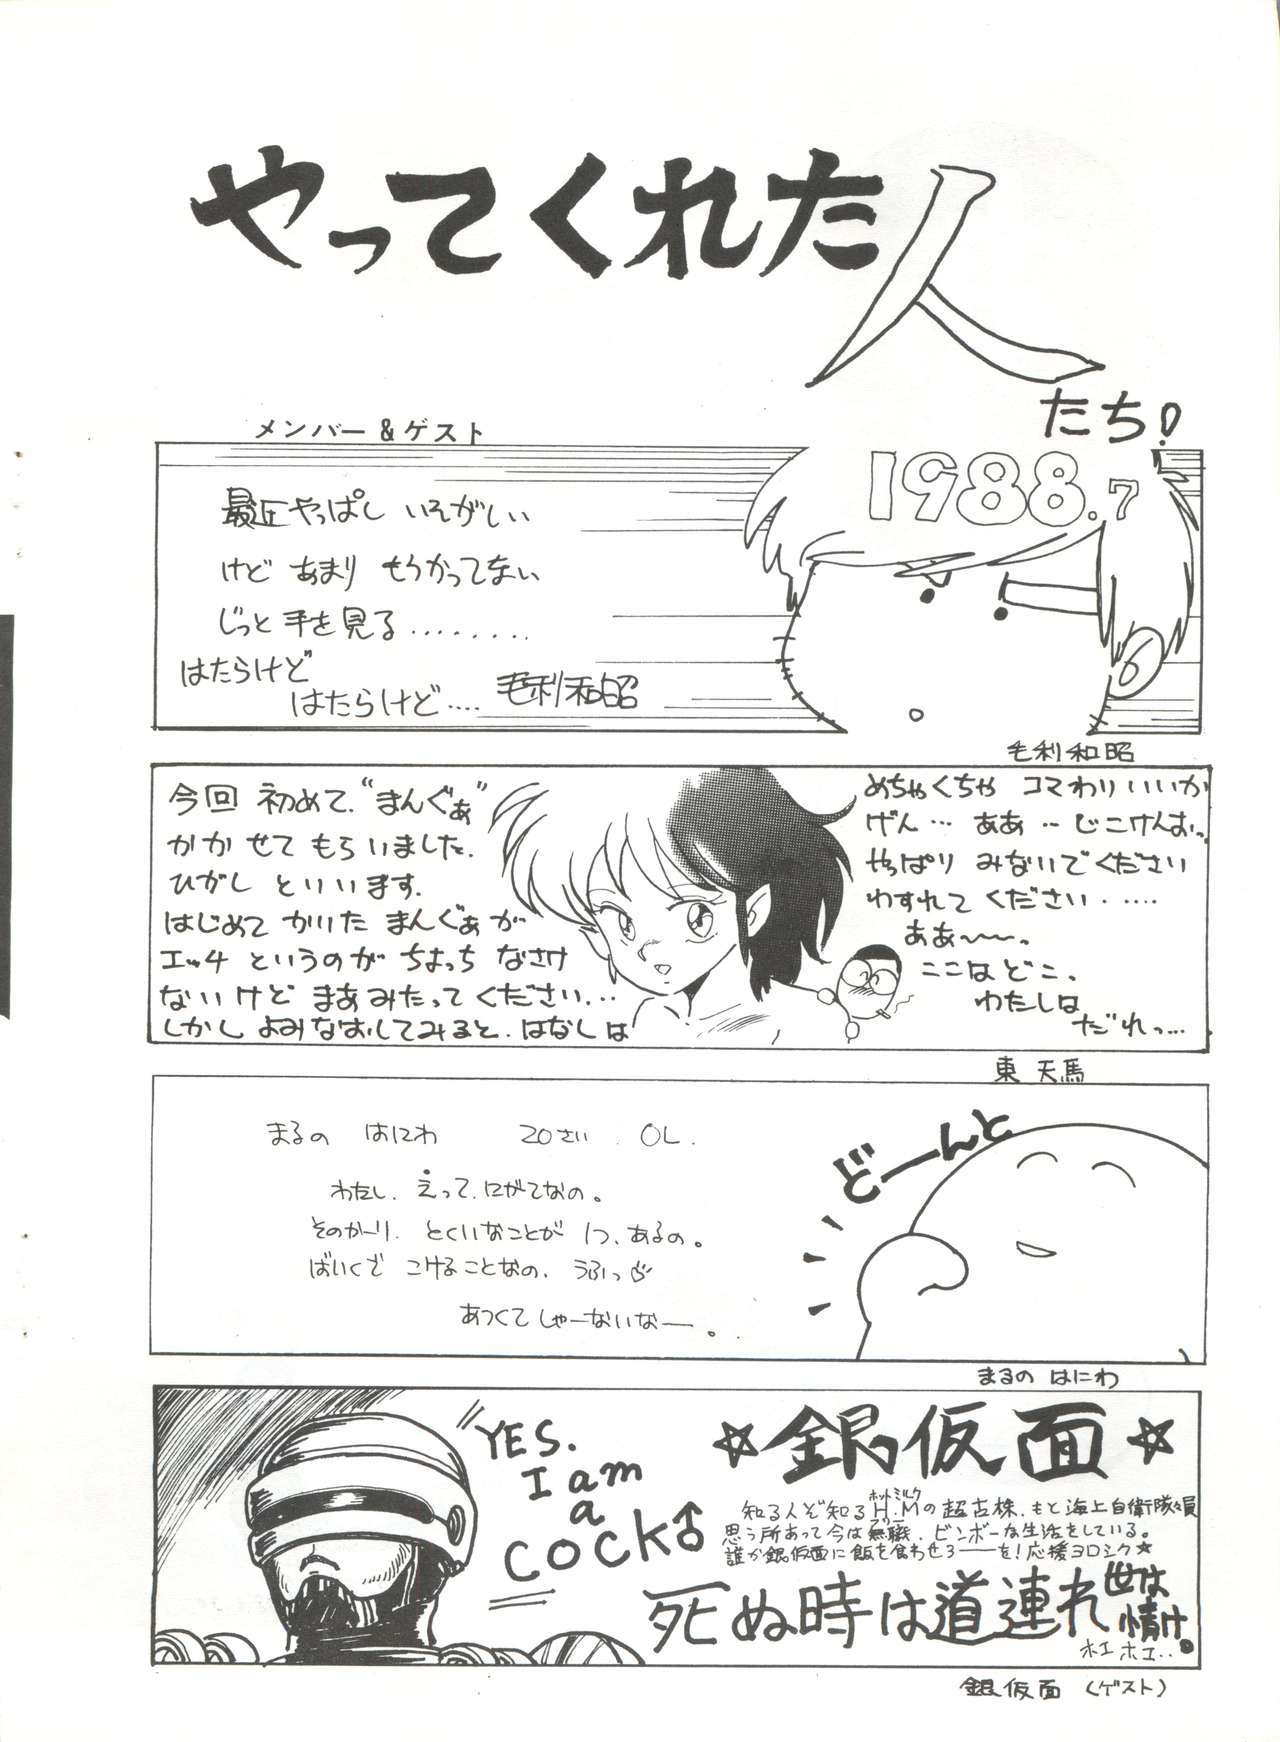 やってくれた人
たち!
メンバー&ゲスト
1988.7
最近やっぱし いそがしい
けど あまり もうかってない
じっと 手を見る........
はたらけど
はたらけど.... 毛利和昭
毛利和昭
今回 初めて、“まんぐぁ”
かかせて もらいました.
ひがし といいます.
はじめて かいた まんぐぁが
エッチ というのが ちょっち なさけ
ないけど まあみたってください...
しかし よみなおしてみると、はなしは
めちゃくちゃ コマわり いいか
げん… ああ… じこけんおっ
やっぱり みないでください
わすれて ください.....
ああ〜〜。
ここはどこ、
わたしは
だれっ…
東 天馬
まるの はにわ 20さい. OL.
わたし、えって、にがてなの。
そのかーり、とくいなことが 1つ、あるの。
ばいくで こけることなの、うふっ♡
あつくてしゃーないなー。
どーーんと
まるの はにわ
YES.
I am
a
COCK♂
☆銀仮面☆
ホットミルク
知る人ぞ知るH.Mの超古株、もと海上自衛隊々員
フリー
思う所あって今は無職、ビンボーな生活をしている。
誰か銀仮面に飯を食わせろーーを!応援ヨロシク☆
死ぬ時は道連れ 世は
情け。
ホエ ホエ..
銀仮面 (ゲスト)